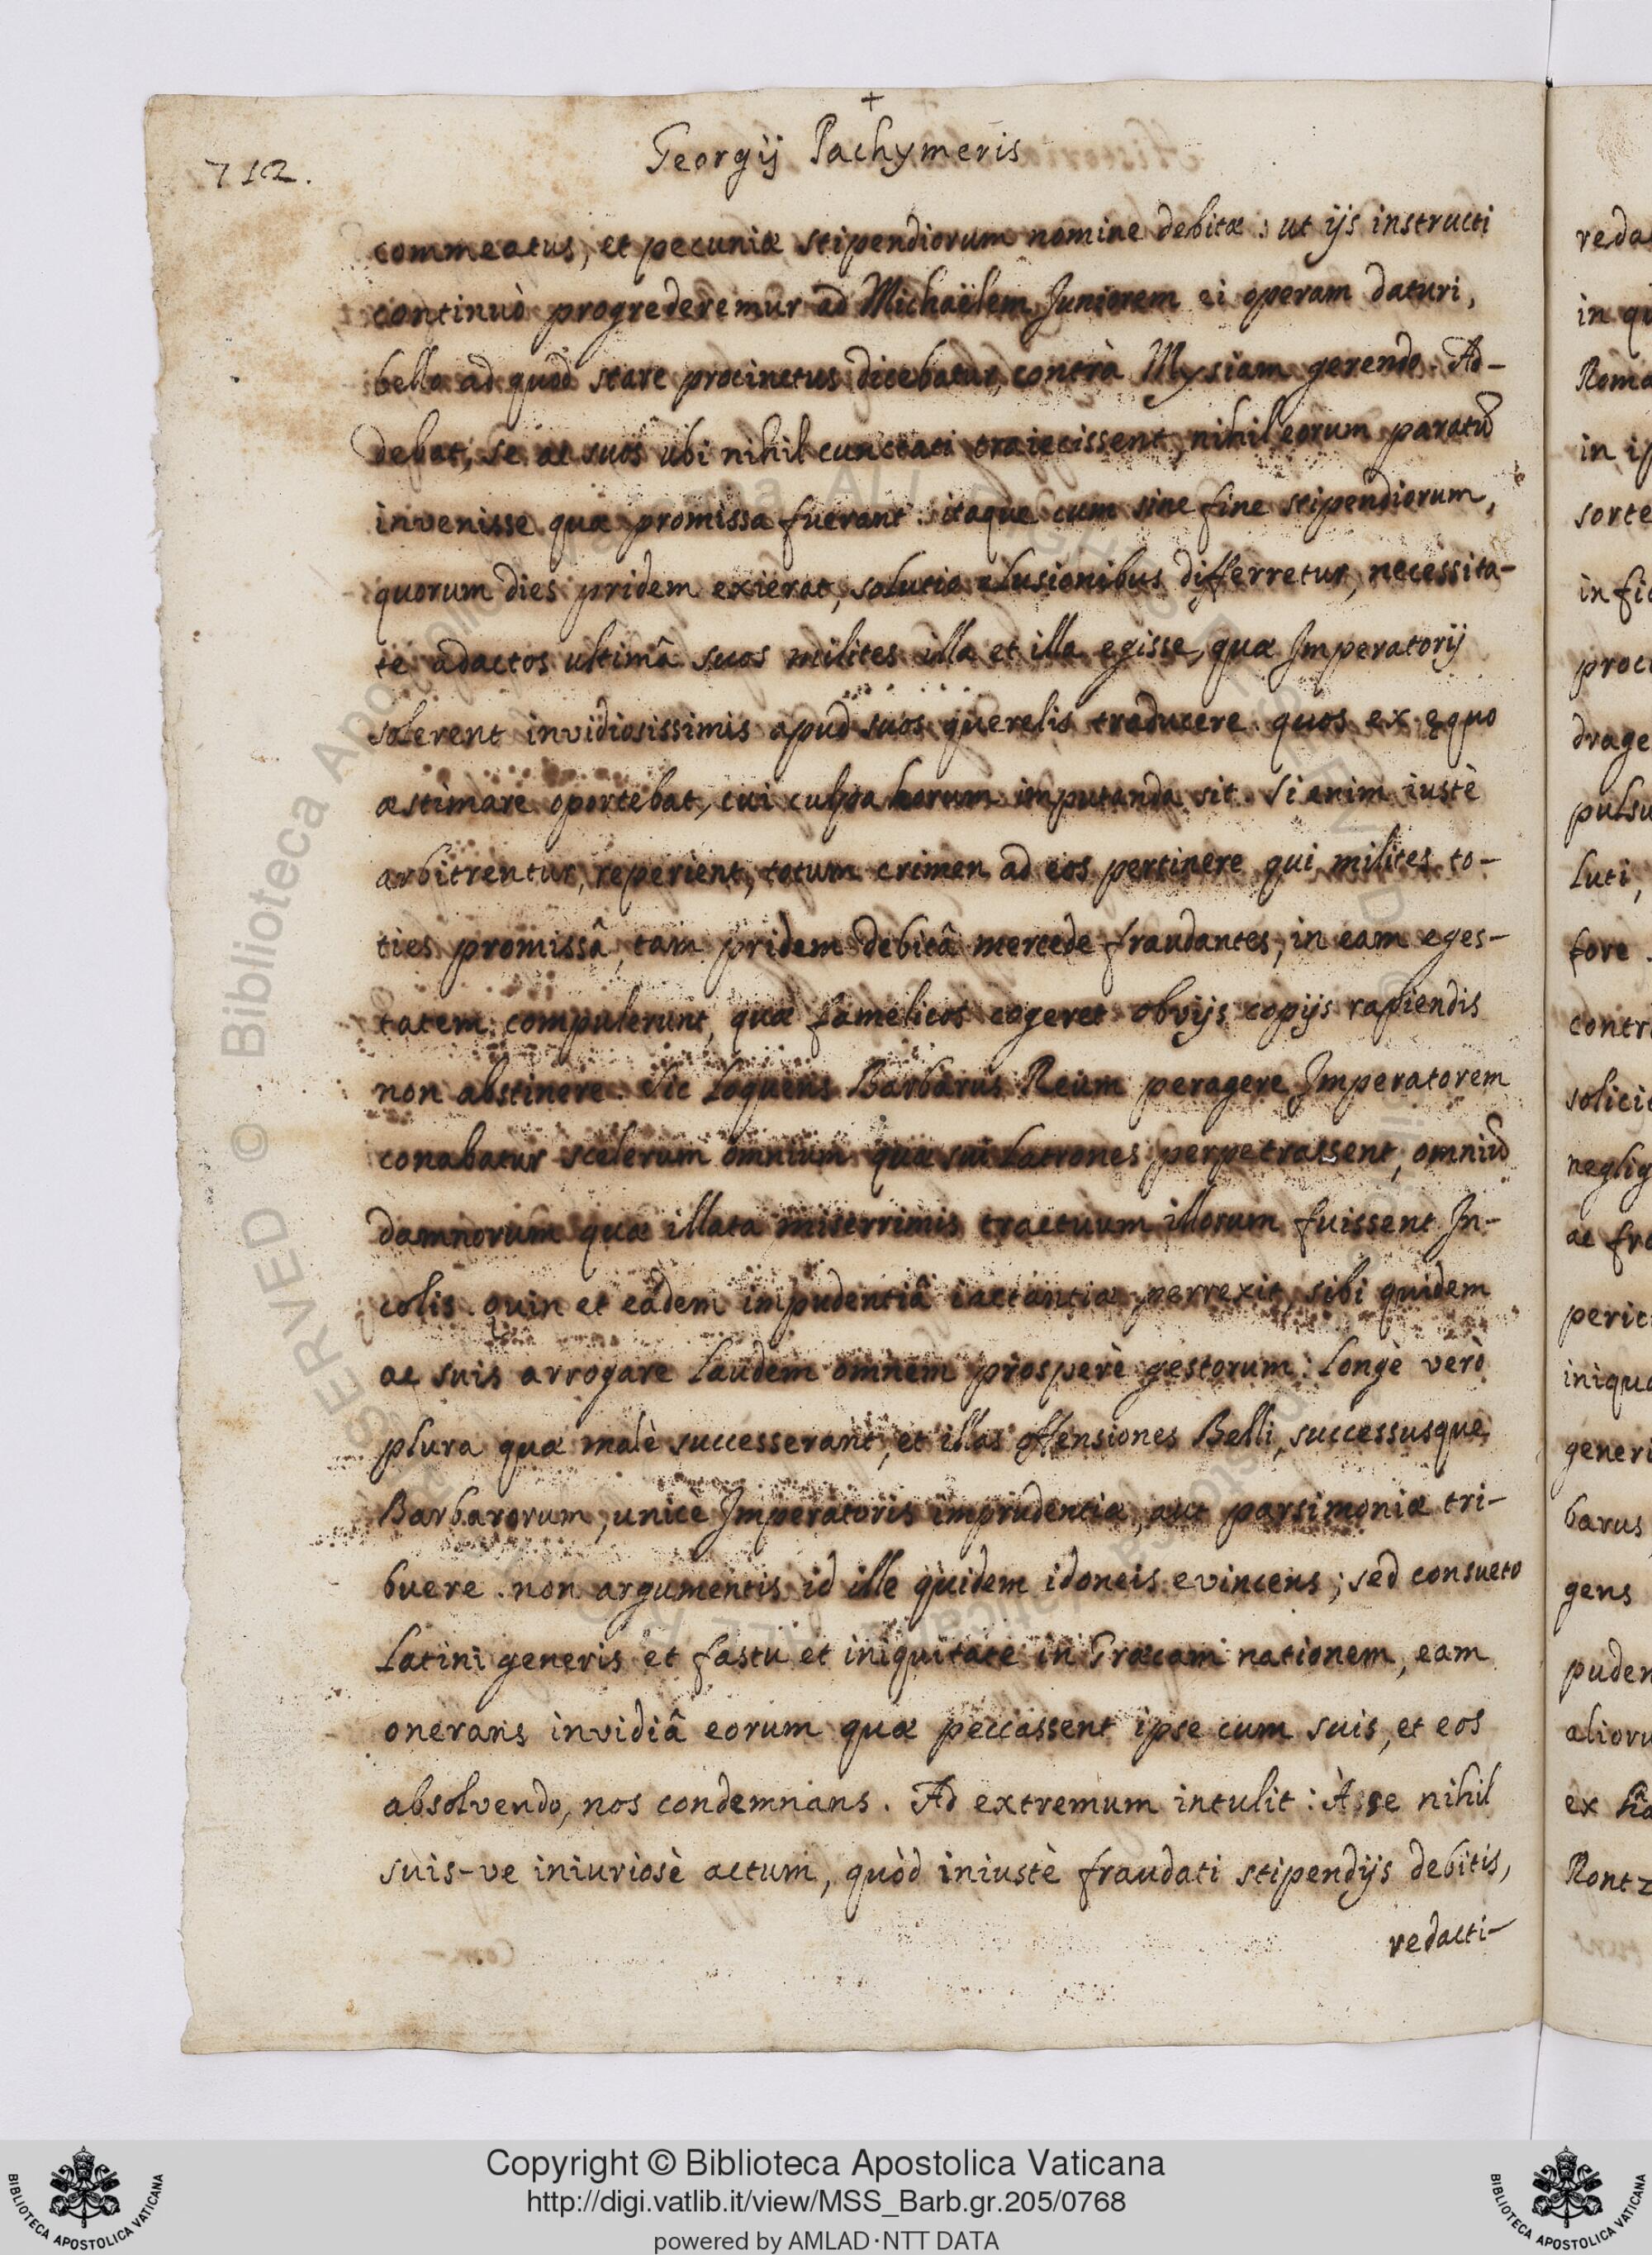 +
712.
Georgij Pachymeris
commeatus, et pecuniæ stipendiorum nomine debitæ: ut ijs instructi
continuò progrederemur ad Michaëlem Juniorem ei operam daturi,
bello ad quod stare procinctus dicebatur, contrà Mysiam gerendo. Ad-
debat, se ac suos ubi nihil cunctati traiecissent, nihil eorum paratũ
invenisse quæ promissa fuerant: itaque cum sine fine stipendiorum,
quorum dies pridem exierat, solutio elusionibus differretur, necessita-
te adactos ultimâ suos milites illa et illa egisse, quæ Imperatorij
solerent invidiosissimis apud suos querelis traducere. quos ex ęquo
æstimare oportebat, cui culpa horum imputanda sit. Si enim iustè
arbitrentur, reperient, totum crimen ad eos pertinere qui milites to-
ties promissâ, tam pridem debitâ mercede fraudantes, in eam eges-
tatem compulerunt, quæ famelicos cogeret obvijs copijs rapiendis
non abstinere. Sic loquens Barbarus Reum peragere Imperatorem
conabatur scelerum omnium quæ sui latrones perpetrassent, omniũ
damnorum quæ illata miserrimis tractuum illorum fuissent In-
colis. Quin et eâdem impudentiâ iactantiæ perrexit, sibi quidem
ac suis arrogare laudem omnem prosperè gestorum: longè verò
plura quæ malè successerant, et illas offensiones Belli, successusque
Barbarorum, unicè Imperatoris imprudentiæ, aut parsimoniæ tri-
buere. non argumentis id ille quidem idoneis evincens; sed consueto
Latini generis et fastu et iniquitate in Græcam nationem, eam
onerans invidiâ eorum quæ peccassent ipse cum suis, et eos
absolvendo, nos condemnans. Ad extremum intulit: À se nihil
suis-ve iniuriosè actum, quòd iniustè fraudati stipendijs debitis,
redacti-
Copyright © Biblioteca Apostolica Vaticana
http://digi.vatlib.it/view/MSS_Barb.gr.205/0768
powered by AMLAD·NTT DATA